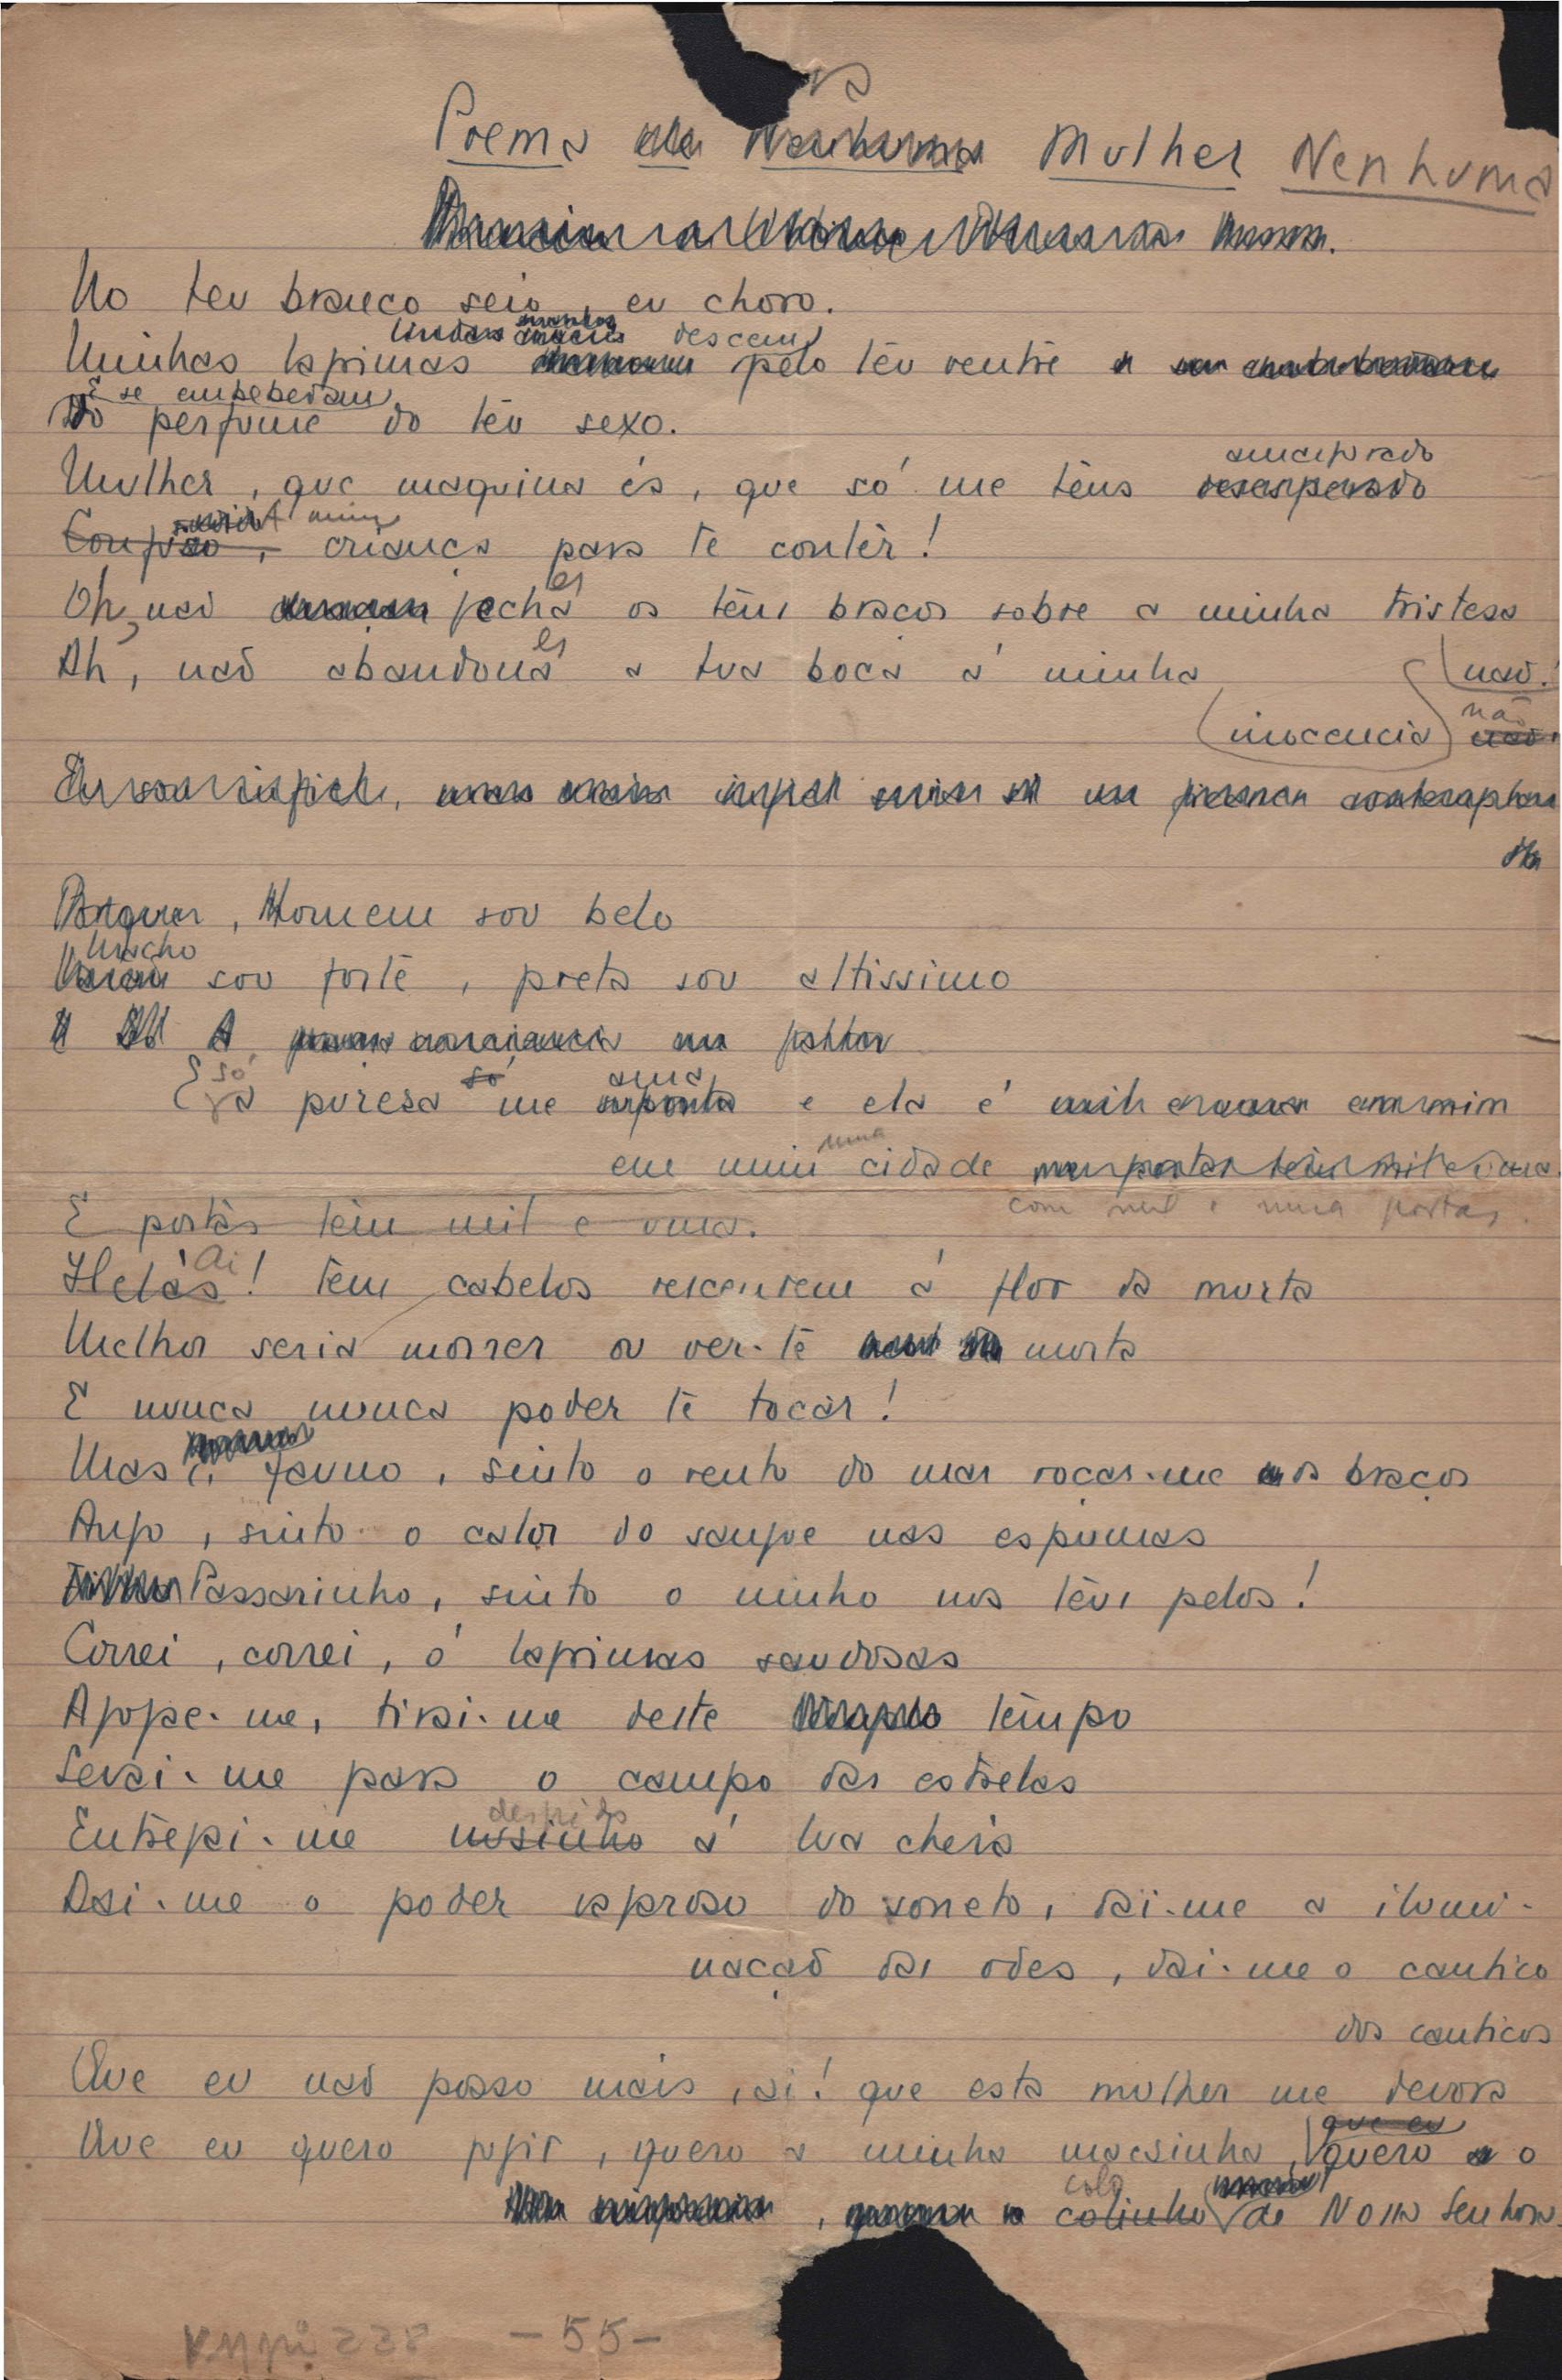 Poema da Mulher Nenhuma
No teu branco seio, eu choro.
descem
Minhas lagrimas pelo têu ventre e
E se embebedam
do perfume do têu sexo.
Mulher, que maquina és, que só me têns desesperado
Confuso, criança para te contêr!
Oh, não feches os têus braços sobre a minha tristesa
Ah, não abandones a tua boca á minha
(inocencia) não
Homem sou belo
Macho
sou forte, poeta sou altissimo
só
E a puresa só me ama e ela é
em mim uma cidade
com mil e uma portas.
E portàs têm mil e uma.
Ai
Helàs! Teus cabelos rescendem á flor da murta
Melhor seria morrer ou ver-te morta
E nunca nunca poder te tocar!
Mas, fauno, sinto o vento do mar roçar-me os braços
Anjo, sinto o calor do sangue nas espumas
Passarinho, sinto o ninho nos têus pelos!
Correi, correi, ó lagrimas saudosas
Afogae-me, tirai-me deste têmpo
Levai-me para o campo das estrelas
despido
Entregai-me á lua cheia
Dai-me o poder vagaroso do soneto, dai-me a ilumi-
naçaõ das odes, dai-me o cantico
dos canticos
Que eu naõ posso mais, ai! que esta mulher me devora
que eu
Que eu quero fugir, quero a minha maesinha, quero o
colo
colinho de Nossa Senhora.
-55-